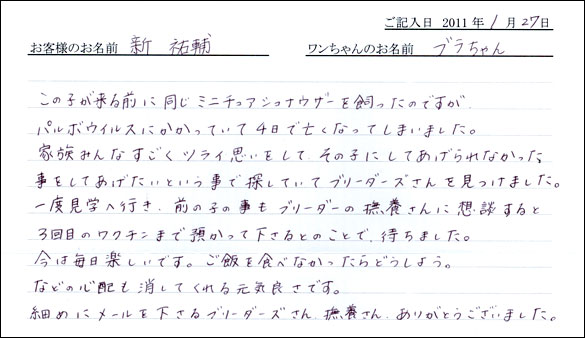 ご記入日 2011年 1月 27日
お客様のお名前 新 祐輔 ワンちゃんのお名前 ブラちゃん
この子が来る前に同じミニチュアシュナウザーを飼ったのですが
パルボウイルスにかかっていて4日で亡くなってしまいました。
家族みんなすごくツライ思いをして、その子にしてあげられなかった
事をしてあげたいという事で探していてブリーダーズさんを見つけました。
一度見学へ行き、前の子の事もブリーダーの撫養さんに想談すると
3回目のワクチンまで預かって下さるとのことで、待ちました。
今は毎日楽しいです。ご飯を食べなかったらどうしよう。
などの心配も消してくれる元気良さです。
細めにメールを下さるブリーダーズさん、撫養さん、ありがとうございました。